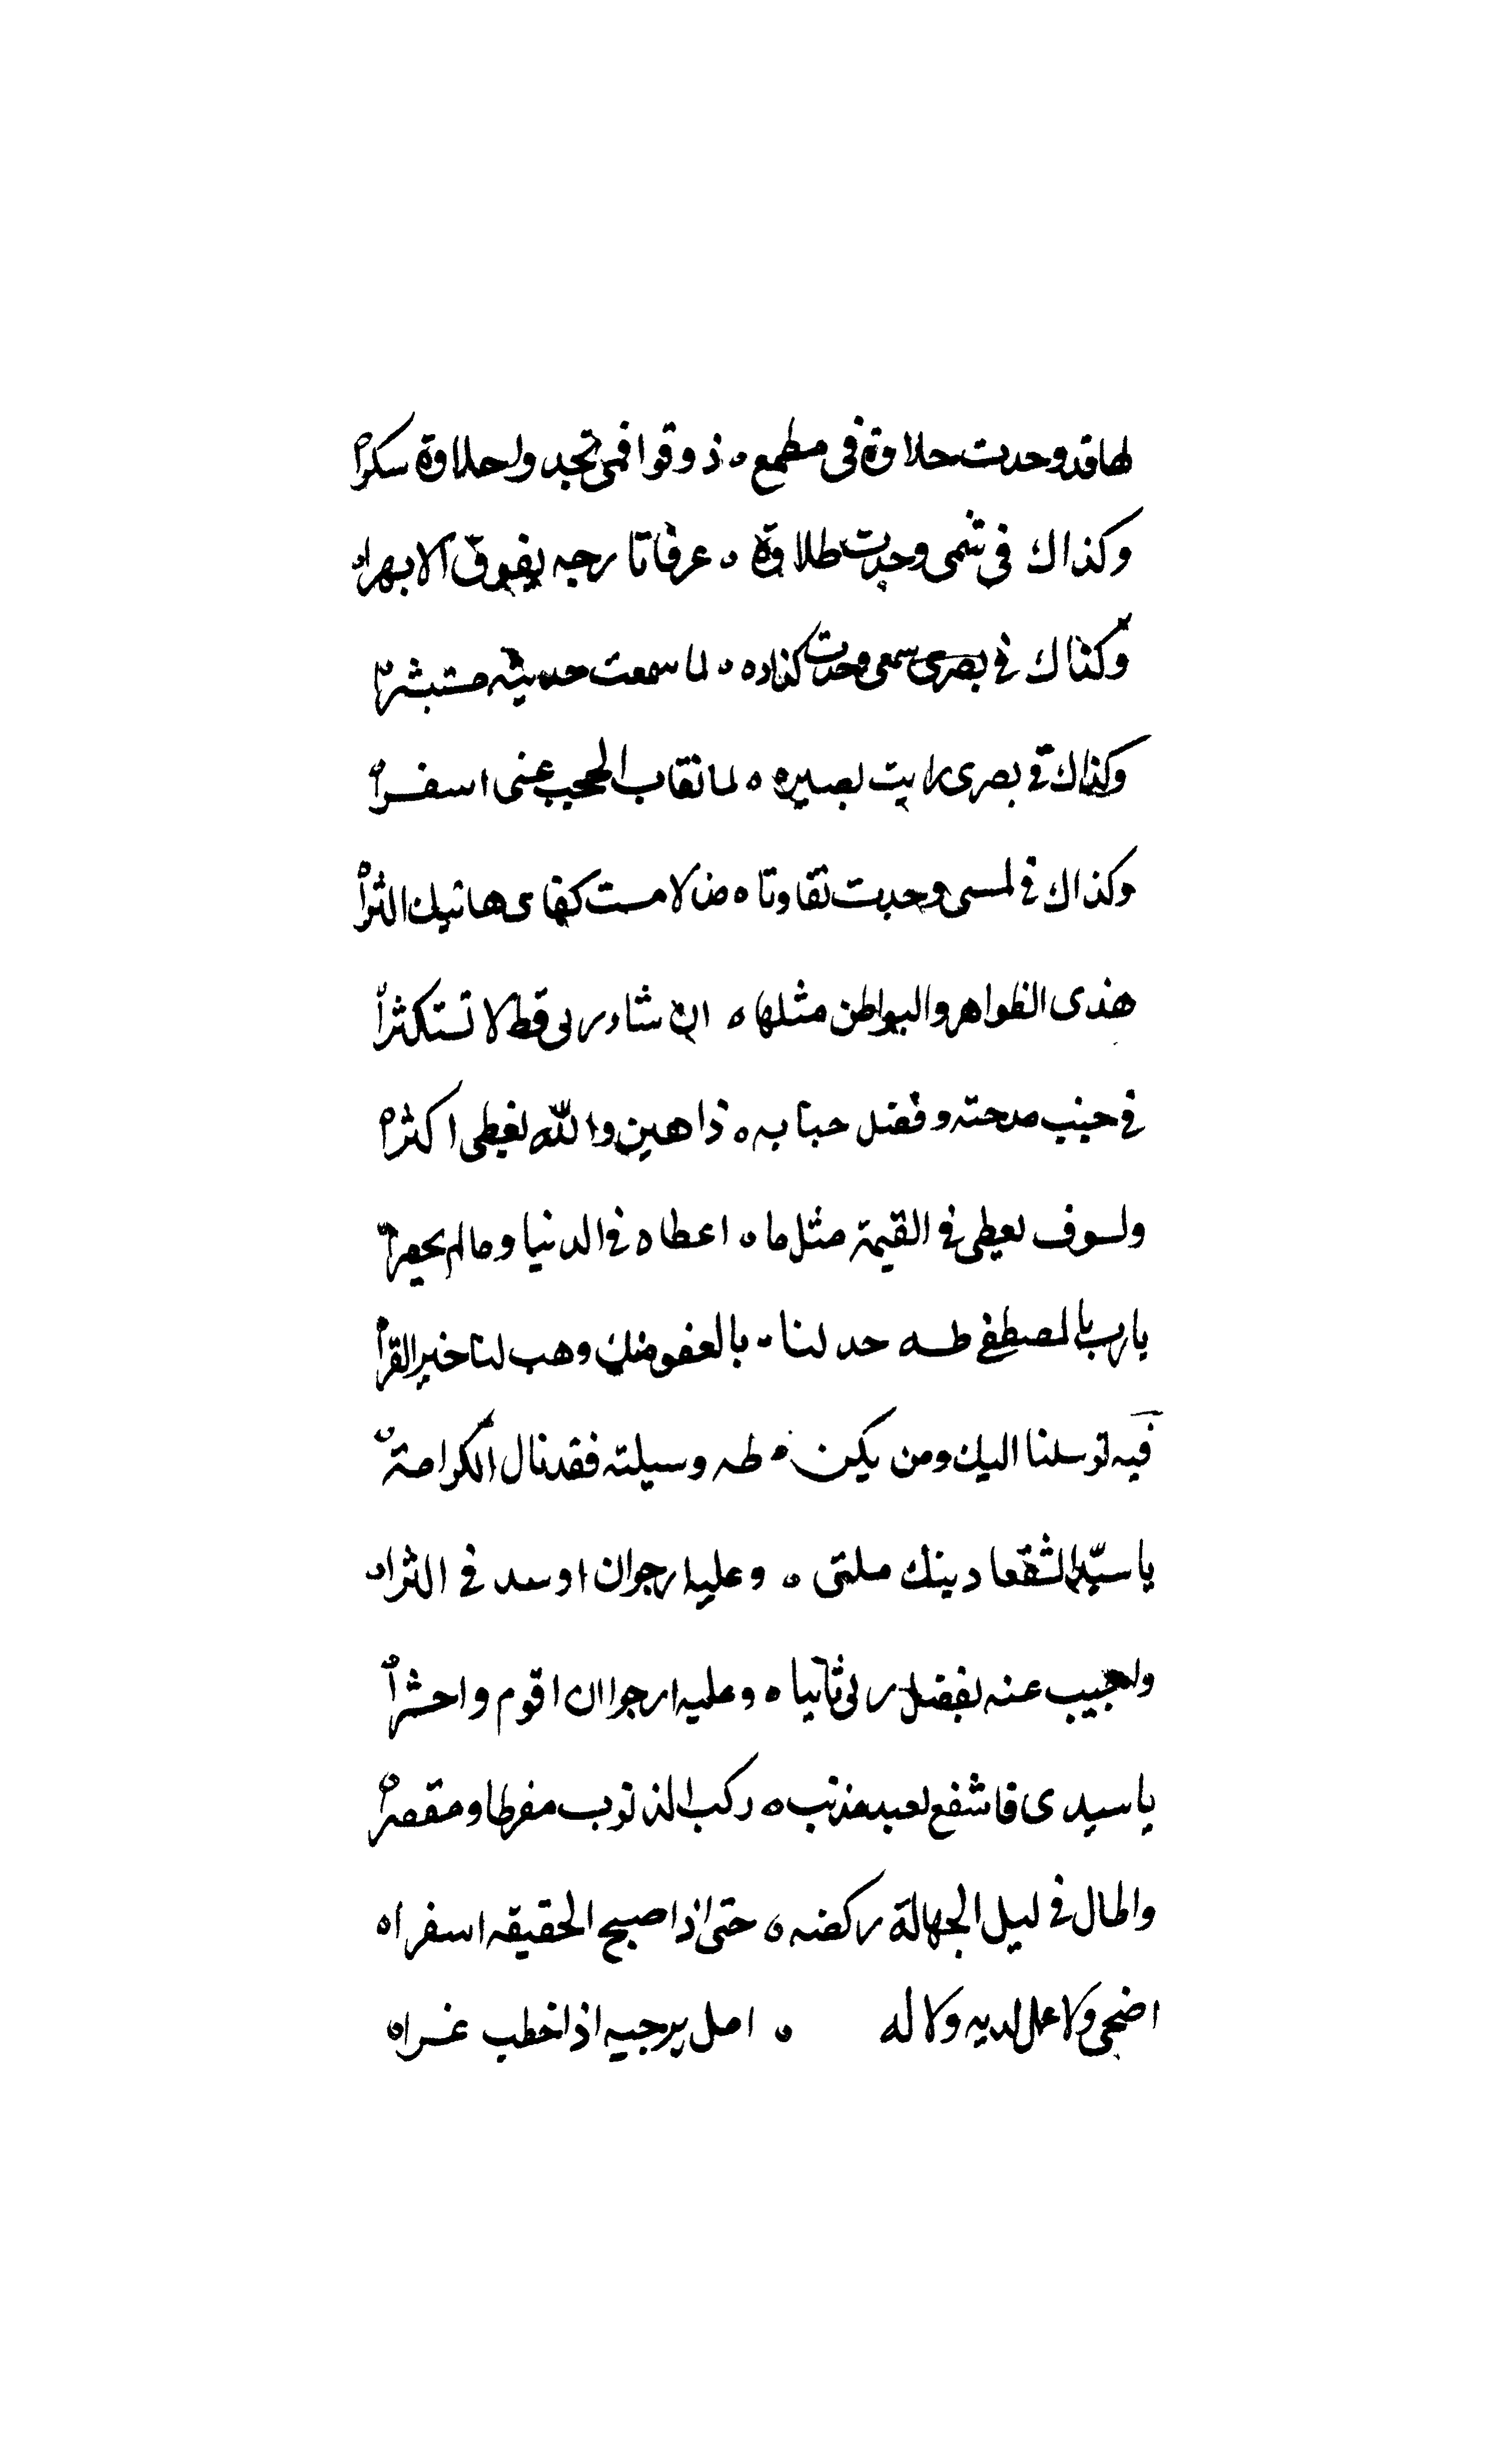 لها قد وجدت حلاوة في مطمع ه ذوقوا فمي تجدوا حلاوة سكرا
وكذاك في شمي وجدت طلاوة ه عرفا تارجه يفوق الابهرا
وكذاك في سمعي وجدت ه لما سمعت حديثه مستبشرا
وكذاك في بصري رايت بصيره ه لما نقاب الحجب عني اسفرا
وكذاك في لمسي وجدت نقاوتا ه لامست كفاي هاتيك الثرا
هذي الظواهر والبواطن مثلها ه ان شاء ربي قط لا تستكثرا
في جنب مدحته وفضل جنابه ه ذا هين والله يعطي اكثرا
ولسوف يعطي في القيمة مثل ما ه اعطاه في الدنيا وما لم يحصرا
يا رب بالمصطفى طه جد لنا ه بالعفو منك وهب لنا خير القرا
فبه توسلنا اليك ومن يكن ه طه وسيلته فقد نال الكرامة
يا سيد الشفعا دينك ملتي ه وعليه ارجو ان اوسد في الثرا
واجيب عنه بفضل ربي ثانيا ه وعليه ارجو ان اقوم واحشرا
يا سيدي فاشفع لعبد مذنب ه ركب الذنوب مفرطا ومقصرا
واطال في ليل الجهالة ركضه ه حتى اذا صبح الحقيقه اسفرا
اضحى ولا عمل لديه ولا له ه امل يرجيه اذا خطب عرا